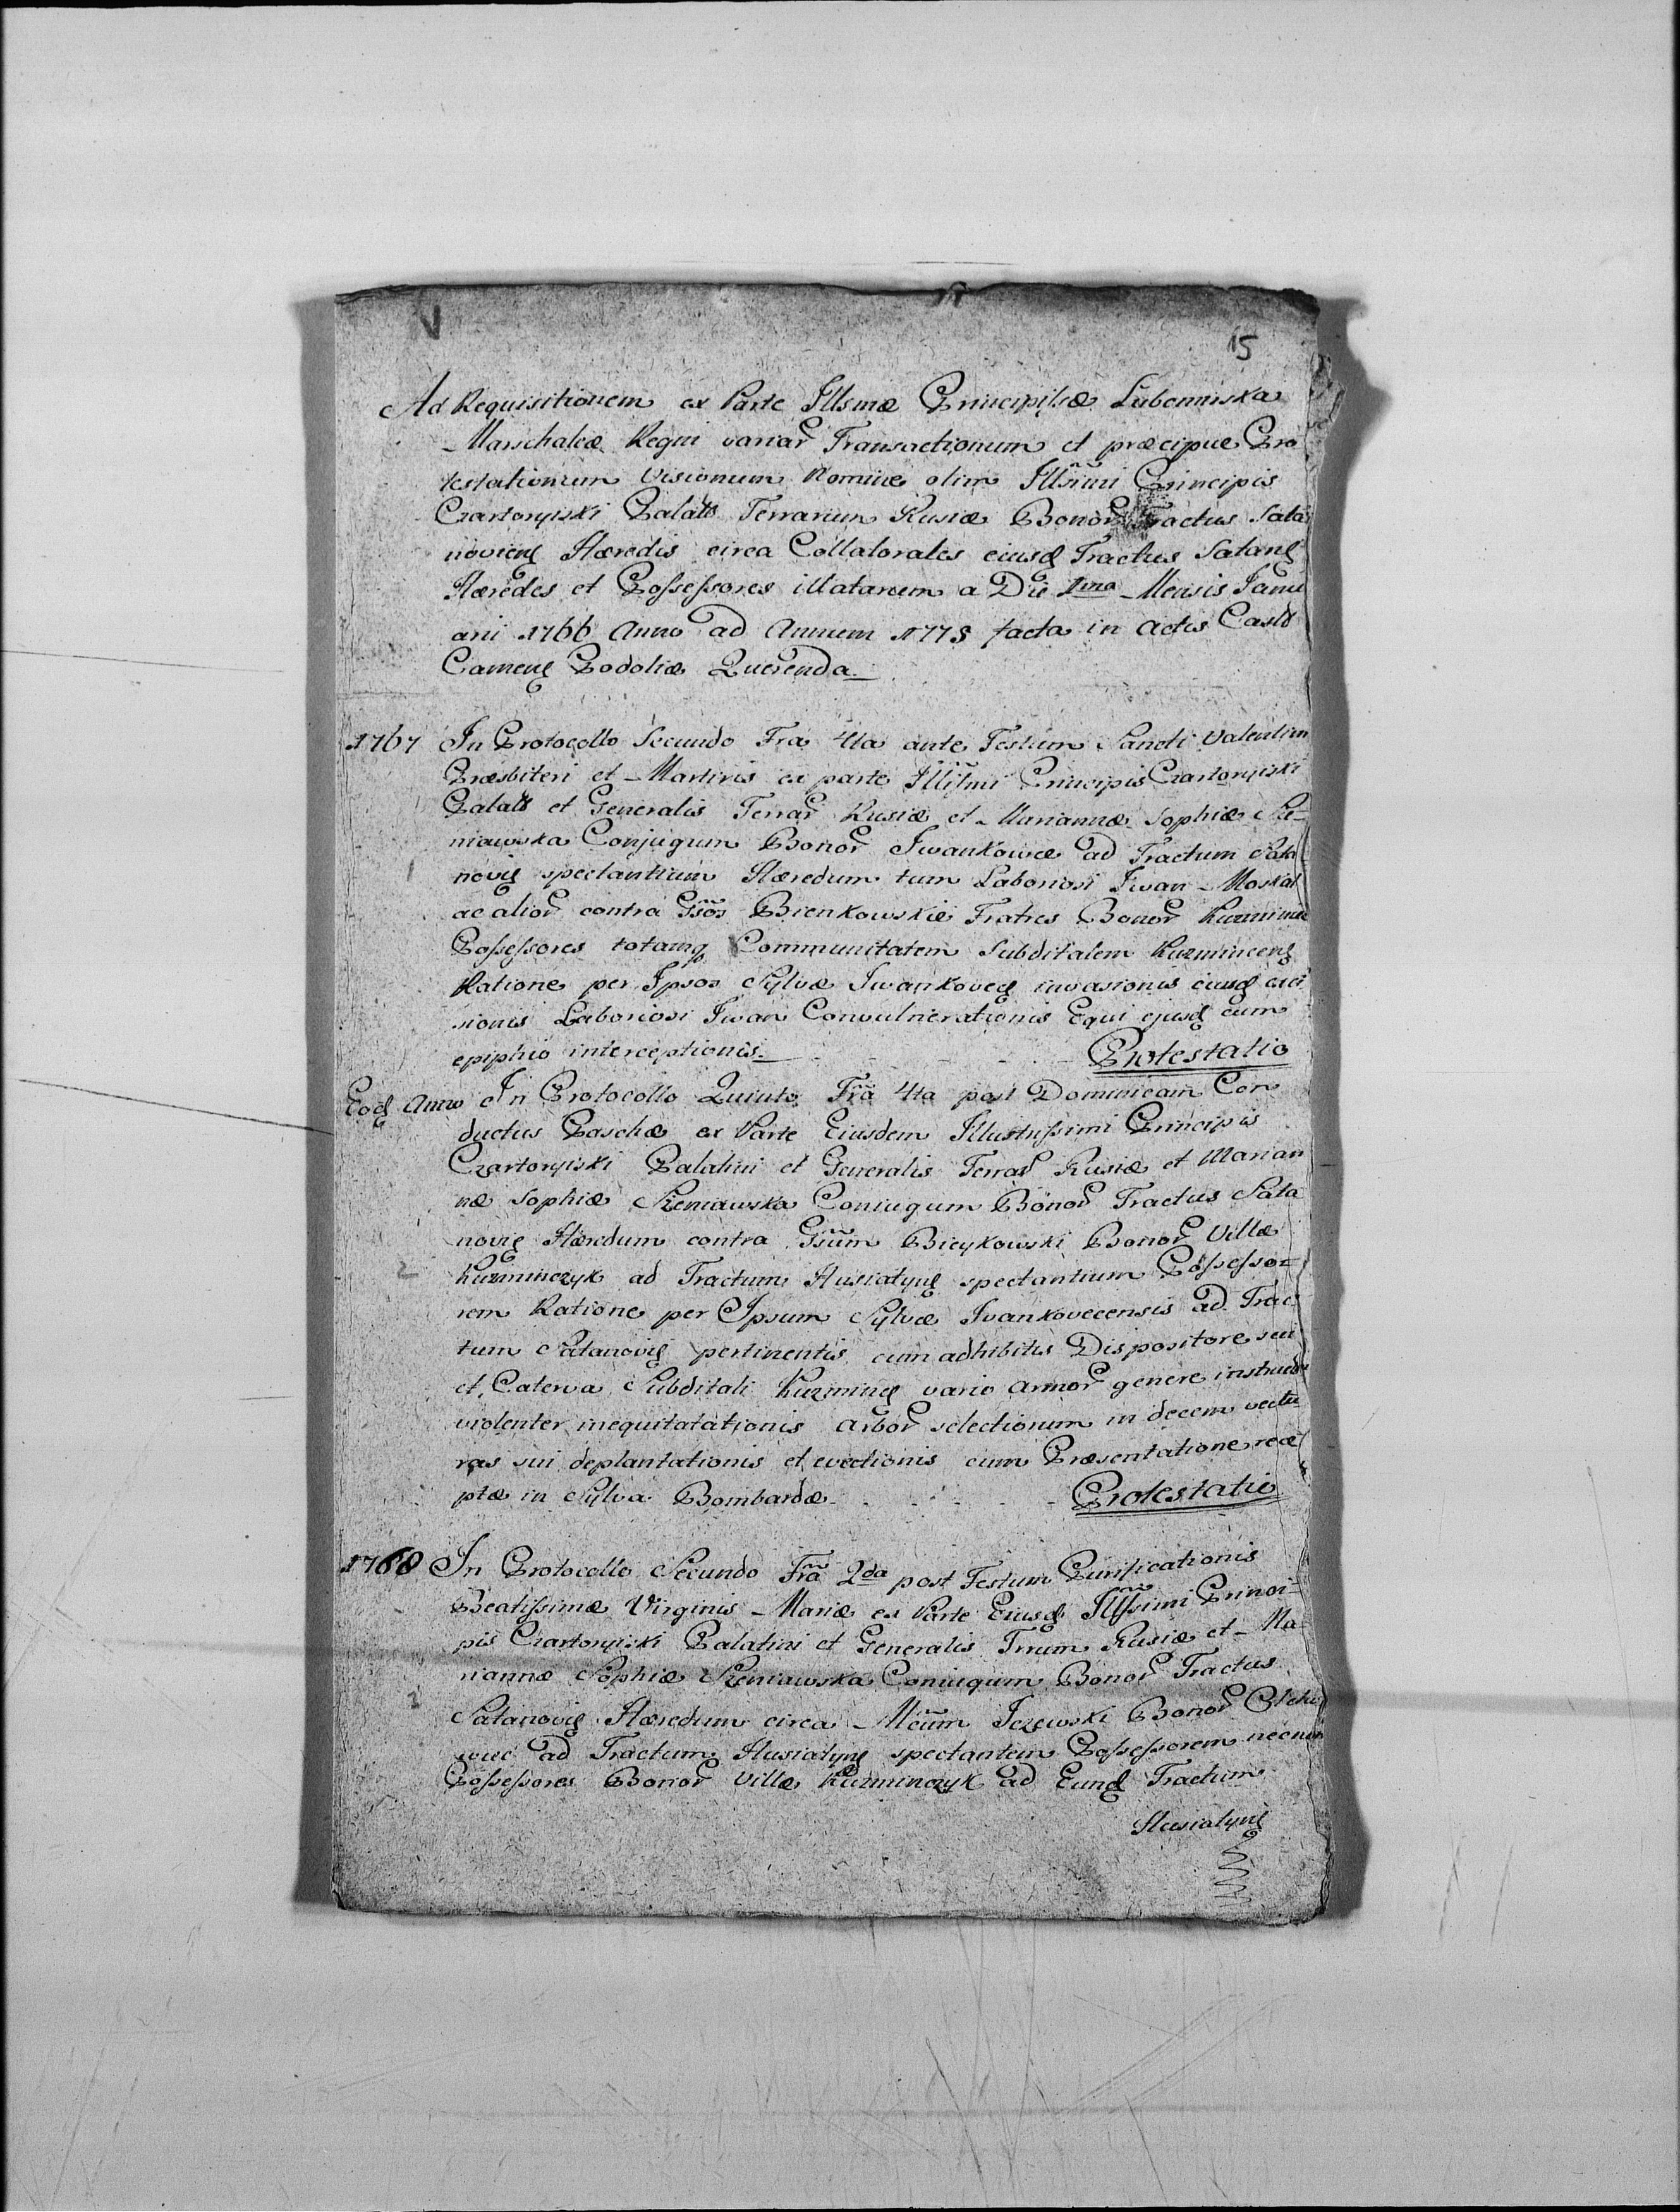 15
Ad Requisitionem ex Parte Illsmæ Principissæ Lubomirska
Marschalcæ Regni variar Transactionum et præcipue Pro
testationum Visionum Nomine olim Illsimi Principis
Czartoryiski Palatt Terrarum Rusiæ Bonor Tractus Sata
noviens Hæredis circa Collatorales eiusd Tractus Satans
Hæredes et Possessores illatarum a Die 1ma Mensis Janu
arii 1766 Anno ad Annum 1778 facta in Actis Castr
Camens Podoliæ Querenda
1767 In Protocollo Secundo Fra 4ta ante Festum Sancti Valentini
Præsbiteri et Martiris ex parte Illismi Principis Czartoryiski
Palatt et Generalis Terrar Rusiæ et Mariannæ Sophiæ Sie-
niawska Conjugum Bonor Iwankowce ad Tractum Sata
1 novis spectantium Hæredum tum Laboriosi Iwan Moskal
ac alior contra Gsos Bienkowskie Fratres Bonor Kuzmince
Possessores totamq Communitatem Subditalem Kuzmincens
Ratione per Ipsos Sylvæ Iwankovecs invasionis eiusd exci
sionis Laboriosi Iwan Convulnerationis Equi ejusd cum
epiphio interceptionis. Protestatio
Eod Anno In Protocollo Quinto Fra 4ta post Dominicam Con
ductus Paschæ ex Parte Eiusdem Illustrissimi Principis
Czartoryiski Palatini et Generalis Terrar Rusiæ et Marian
næ Sophiæ Sieniawska Coniugum Bonor Tractus Sata
novis Hæredum contra Gsum Bieykowski Bonor Villæ
2 Kuzminczyk ad Tractum Husiatyns spectantium Possesso-
rem Ratione per Ipsum Sylvæ Ivankovecensis ad Trac
tum Satanovis pertinentis cum adhibitis Dispositore sui
et Caterva Subditali Kuzmins vario armor genere instructa
violenter inequitatationis Arbor selectionum in decem vectu
ras sui deplantationis et evectionis cum Præsentatione rece
ptæ in Sylva Bombardæ Protestatio
1768 In Protocollo Secundo Fra 2da post Festum Purificationis
Beatissimæ Virginis Mariæ ex Parte Eiusd Illssimi Princi-
pis Czartoryiski Palatini et Generalis Trrum Rusiæ et Ma
riannæ Sophiæ Sieniawska Coniugum Bonor Tractus
Satanovis Hæredum circa Mcum Jezewski Bonor
ad Tractum Husiatyns spectantem Possessorem necnon
Possessores Bonor Villæ Kuzminczyk ad Eund Tractum
Husiatyns